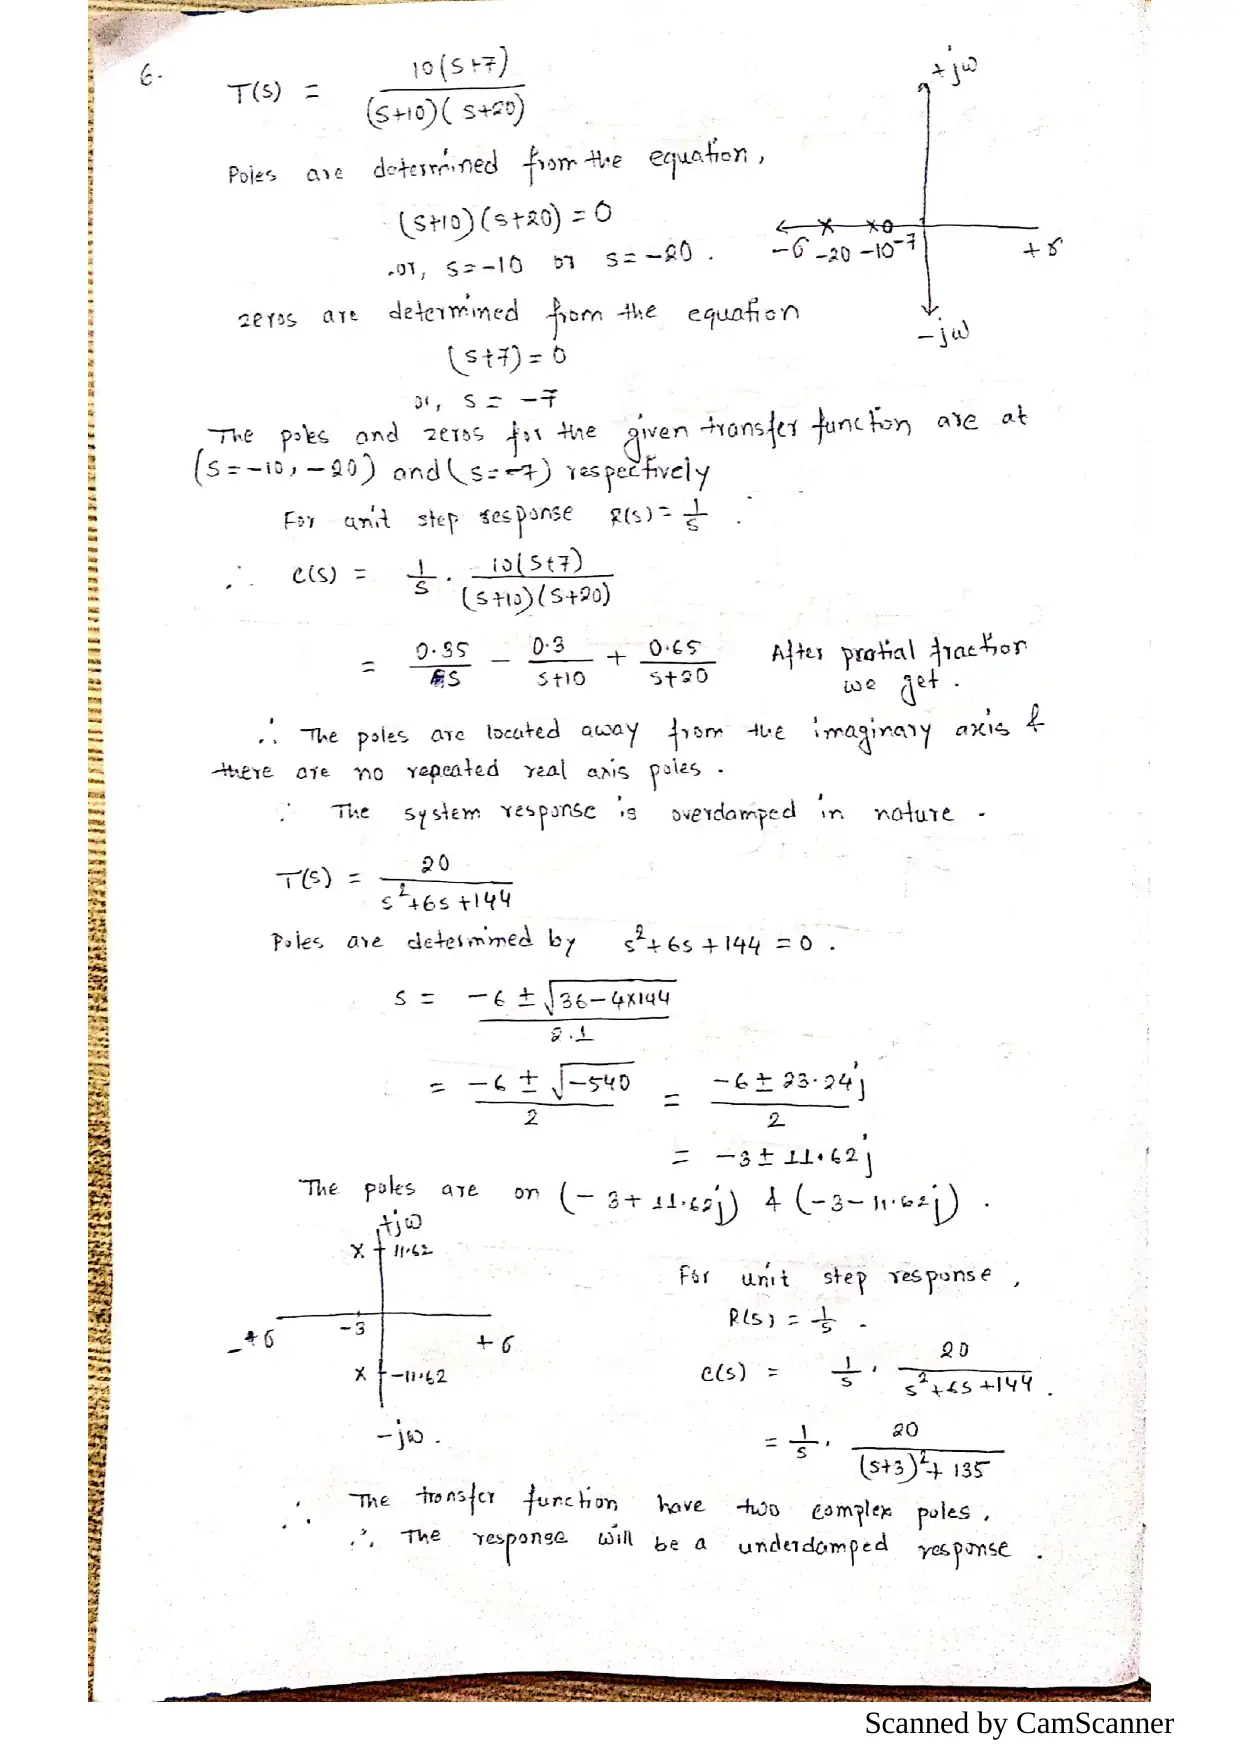 6.
T(s) = 10(s+7) / (s+10)(s+20)
Poles are determined from the equation,
(s+10)(s+20) = 0
or, s = -10 or s = -20 .
zeros are determined from the equation
(s+7) = 0
or, s = -7
+jω
-σ -20 -10 -7 +σ
-jω
The poles and zeros for the given transfer function are at
(s = -10, -20) and (s = -7) respectively
For unit step response R(s) = 1/s .
∴ C(s) = 1/s . 10(s+7) / (s+10)(s+20)
= 0.35/s - 0.3/s+10 + 0.65/s+20 After protial fraction
we get .
∴ The poles are located away from the imaginary axis &
there are no repeated real axis poles .
∴ The system response is overdamped in nature .
T(s) = 20 / s²+6s+144
Poles are determined by s²+6s+144 = 0 .
s = -6 ± √36-4×144 / 2.1
= -6 ± √-540 / 2 = -6 ± 23.24j / 2
= -3 ± 11.62j
The poles are on (-3+11.62j) & (-3-11.62j) .
+jω
x 11.62
-σ -3 +σ
x -11.62
-jω .
For unit step response ,
R(s) = 1/s .
C(s) = 1/s . 20 / s²+6s+144 .
= 1/s . 20 / (s+3)²+135
∴ The transfer function have two complex poles .
∴ The response will be a underdamped response .
Scanned by CamScanner